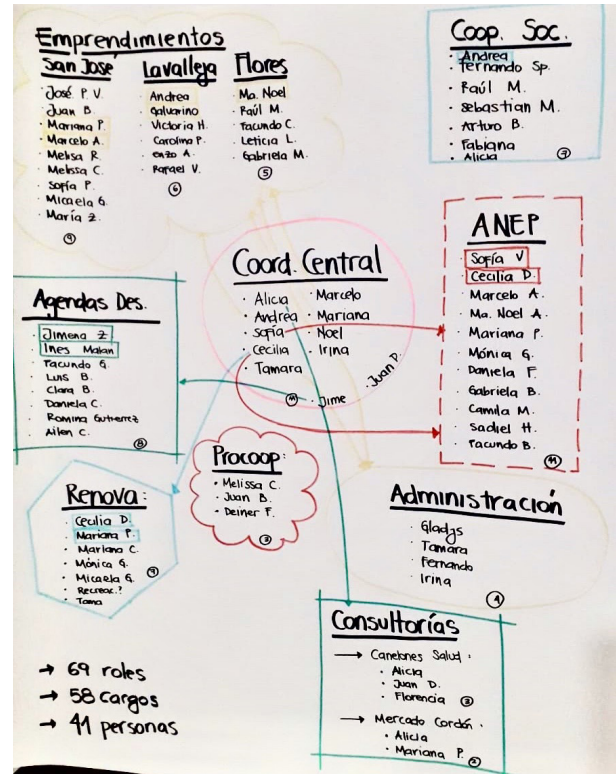 Emprendimientos
San José
· José P. V.
· Juan B.
· Mariana P.
· Marcelo A.
· Melisa R.
· Melissa C.
· Sofía P.
· Micaela G.
· María Z.
9
Lavalleja
· Andrea
· Galvarino
· Victoria H.
· Carolina P.
· enzo A.
· Rafael V.
6
Flores
· Ma. Noel
· Raúl M.
· Facundo C.
· Leticia L.
· Gabriela M.
5
Coop. Soc.
· Andrea
· Fernando Sp.
· Raúl M.
· Sebastian M.
· Arturo B.
· Fabiana
· Alicia
7
Coord. Central
· Alicia
· Andrea
· Sofía
· Cecilia
· Tamara
· Marcelo
· Mariana
· Noel
· Irina
· Juan D.
· Jime
11
ANEP
· Sofía V
· Cecilia D.
· Marcelo A.
· Ma. Noel A.
· Mariana P.
· Mónica G.
· Daniela F.
· Gabriela B.
· Camila M.
· Sadiel H.
· Facundo B.
11
Agendas Des.
· Jimena Z
· Ines Malan
· Facundo G.
· Luis B.
· Clara B.
· Daniela C.
· Romina Gutierrez
· Ailen C.
8
Procoop:
· Melissa C.
· Juan B.
· Deiner F.
3
Renova:
· Cecilia D.
· Mariana P.
· Mariana C.
· Mónica G.
· Micaela G.
· Recreac.?
· Tama
7
Administración
· Gladys
· Tamara
· Fernando
· Irina
4
Consultorías
→ Canelones Salud:
· Alicia
· Juan D.
· Florencia 3
→ Mercado Cordón.
· Alicia
· Mariana P. 2
→ 69 roles
→ 58 cargos
→ 41 personas